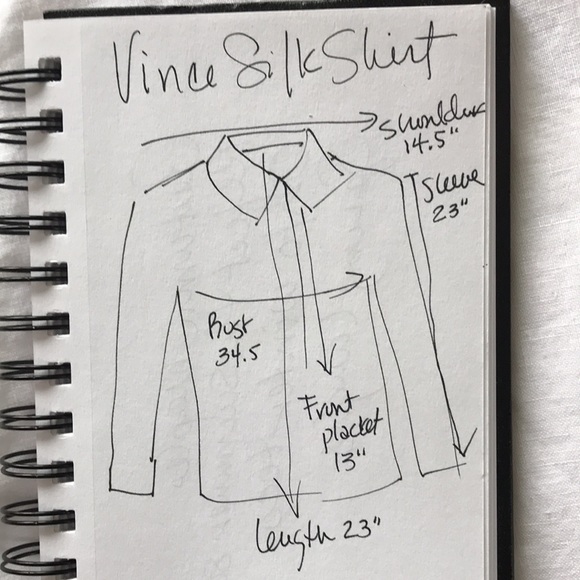 Vince Silk Shirt
Shoulders
14.5"
Sleeve
23"
Bust
34.5
Front
placket
13"
Length 23"